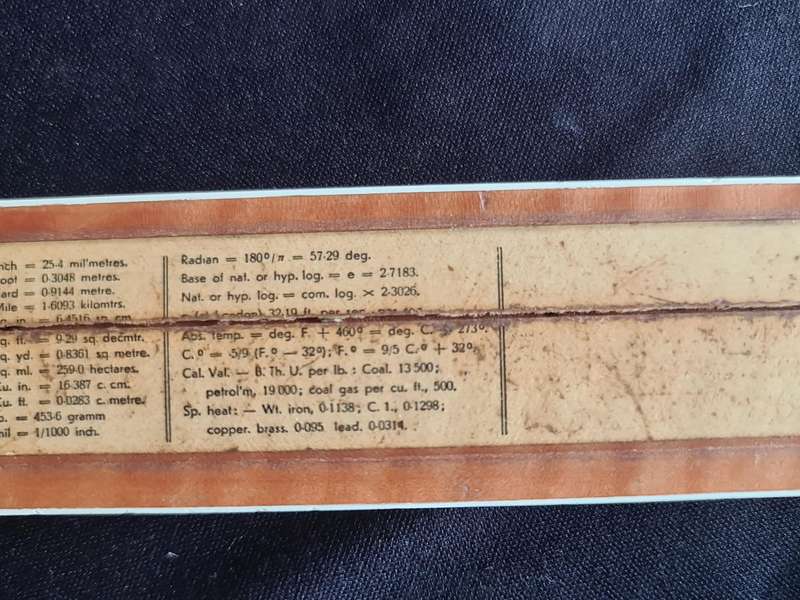 nch = 25·4 mil'metres.
oot = 0·3048 metres.
ard = 0·9144 metre.
Mile = 1·6093 kilomtrs.
in. = 6·4516 sq cm
q. ft. = 9·29 sq. decmtr.
q. yd. = 0·8361 sq metre.
q. ml. = 259·0 hectares.
Cu. in. = 16·387 c. cm.
Cu. ft. = 0·0283 c. metre.
= 453·6 gramm
mil = 1/1000 inch.
Radian = 180°/π = 57·29 deg.
Base of nat. or hyp. log. = e = 2·7183.
Nat. or hyp. log. = com. log. × 2·3026.
32·19 ft. per sec.
Abs. Temp. = deg. F. + 460° = deg. C. + 273°.
C.° = 5/9 (F.° — 32°); F.° = 9/5 C.° + 32°.
Cal. Val. — B. Th. U. per lb.: Coal. 13 500;
petrol'm, 19 000; coal gas per cu. ft., 500.
Sp. heat: — Wt. iron, 0·1138; C. 1., 0·1298;
copper. brass. 0·095 lead. 0·0314.